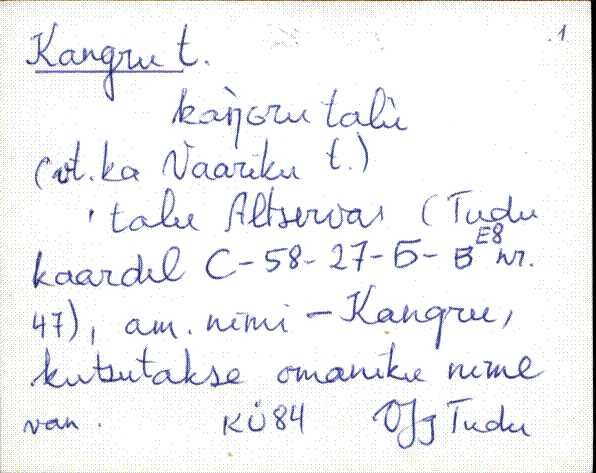 Kangru t. 1
kaŋ̀ɢru talù
(vt. ka Vaariku t.)
talu Altservas (Tudu
kaardil C-58-27-Б-В E8 nr.
47), am. nimi - Kangru,
kutsutakse omaniku nime
van. KÜ84 VJg Tudu